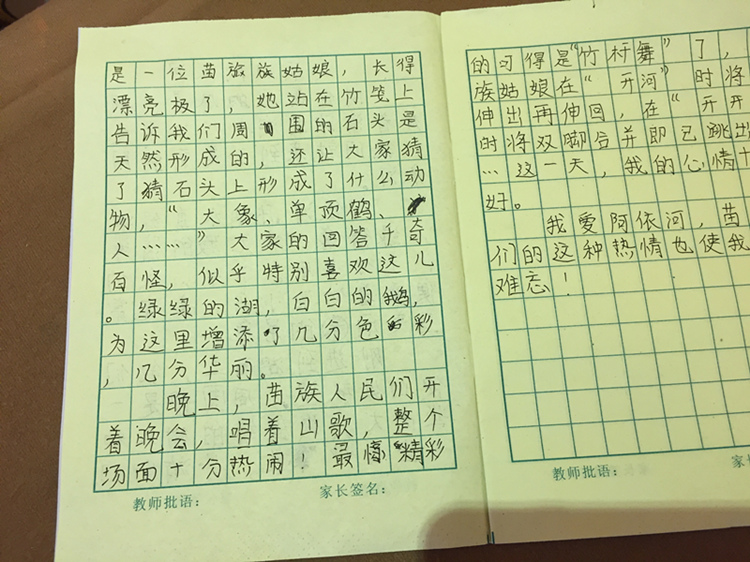 是一位苗旅族姑娘，长得
漂亮极了，她站在竹上
告诉我们周围的石头是
天然形成的，还让大家猜
了猜石头上形成了什么动
物，“大象、单顶鹤、
人……”大家的回答千奇
百怪，似乎特别喜欢这儿
。绿绿的湖，白白的鹅，
为这里增添了几分色彩
，几分华丽。
晚上，苗族人民们开
着晚会，唱着山歌，整个
场面十分热闹！最精彩
教师批语： 家长签名：
的可得是“竹杆舞”了，
族姑娘在“开河”时将
伸出再伸回，在“开开
时将双脚合并即已跳出
…这一天，我的心情十
好。
我爱阿依河，苗
们的这种热情也使我
难忘！
教师批语： 家